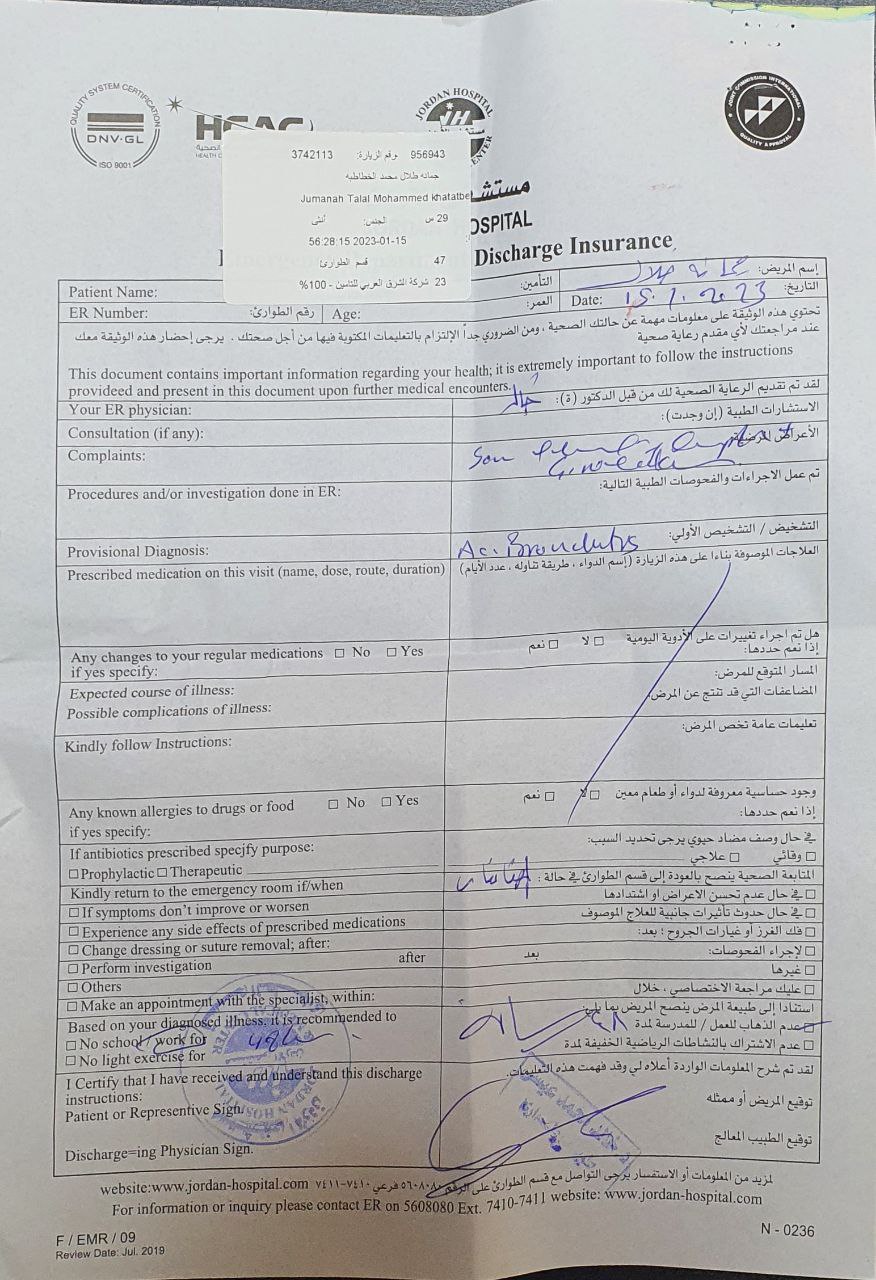 QUALITY SYSTEM CERTIFICATION
DNV·GL
ISO 9001
HCAC
JORDAN HOSPITAL
JH
JOINT COMMISSION INTERNATIONAL
QUALITY APPROVAL
956943 رقم الزيارة: 3742113
جمانه طلال محمد الخطاطبه
Jumanah Talal Mohammed khatatbe
29 س الجنس: أنثى
56:28:15 2023-01-15
47 قسم الطوارئ
23 شركة الشرق العربي للتامين - 100%
Discharge Insurance
Patient Name: التأمين: إسم المريض: جمانه طلال
ER Number: رقم الطوارئ: Age: العمر: Date: 15.1.2023 التاريخ:
تحتوي هذه الوثيقة على معلومات مهمة عن حالتك الصحية ، ومن الضروري جداً الإلتزام بالتعليمات المكتوبة فيها من أجل صحتك . يرجى إحضار هذه الوثيقة معك
عند مراجعتك لأي مقدم رعاية صحية
This document contains important information regarding your health; it is extremely important to follow the instructions
provideed and present in this document upon further medical encounters.
Your ER physician: لقد تم تقديم الرعاية الصحية لك من قبل الدكتور (ة):
Consultation (if any): الاستشارات الطبية (إن وجدت):
Complaints: الأعراض المرضية:
Procedures and/or investigation done in ER: تم عمل الاجراءات والفحوصات الطبية التالية:
Provisional Diagnosis: Ac. Bronchitis التشخيص / التشخيص الأولي:
Prescribed medication on this visit (name, dose, route, duration) العلاجات الموصوفة بناءا على هذه الزيارة (إسم الدواء ، طريقة تناوله ، عدد الأيام)
Any changes to your regular medications □ No □ Yes هل تم اجراء تغييرات على الأدوية اليومية □ لا □ نعم
if yes specify: إذا نعم حددها:
Expected course of illness: المسار المتوقع للمرض:
Possible complications of illness: المضاعفات التي قد تنتج عن المرض:
Kindly follow Instructions: تعليمات عامة تخص المرض:
Any known allergies to drugs or food □ No □ Yes وجود حساسية معروفة لدواء أو طعام معين □ لا □ نعم
if yes specify: إذا نعم حددها:
If antibiotics prescribed specjfy purpose: في حال وصف مضاد حيوي يرجى تحديد السبب:
□ Prophylactic □ Therapeutic □ وقائي □ علاجي
Kindly return to the emergency room if/when المتابعة الصحية ينصح بالعودة إلى قسم الطوارئ في حالة :
□ If symptoms don't improve or worsen □ في حال عدم تحسن الاعراض او اشتدادها
□ Experience any side effects of prescribed medications □ في حال حدوث تأثيرات جانبية للعلاج الموصوف
□ Change dressing or suture removal; after: □ فك الغرز أو غيارات الجروح ؛ بعد:
□ Perform investigation after بعد □ لإجراء الفحوصات:
□ Others □ غيرها
□ Make an appointment with the specialist, within: □ عليك مراجعة الاختصاصي ، خلال
Based on your diagnosed illness, it is recommended to استنادا إلى طبيعة المرض ينصح المريض بما يلي:
□ No school / work for 48h ٤٨ □ عدم الذهاب للعمل / للمدرسة لمدة
□ No light exercise for □ عدم الاشتراك بالنشاطات الرياضية الخفيفة لمدة
I Certify that I have received and understand this discharge لقد تم شرح المعلومات الواردة أعلاه لي وقد فهمت هذه التعليمات.
instructions:
Patient or Representive Sign. توقيع المريض أو ممثله
Discharge=ing Physician Sign. توقيع الطبيب المعالج
JORDAN HOSPITAL
لمزيد من المعلومات أو الاستفسار يرجى التواصل مع قسم الطوارئ على الرقم ٥٦٠٨٠٨٠ فرعي ٧٤١٠-٧٤١١ website:www.jordan-hospital.com
For information or inquiry please contact ER on 5608080 Ext. 7410-7411 website: www.jordan-hospital.com
F / EMR / 09
Review Date: Jul. 2019
N - 0236